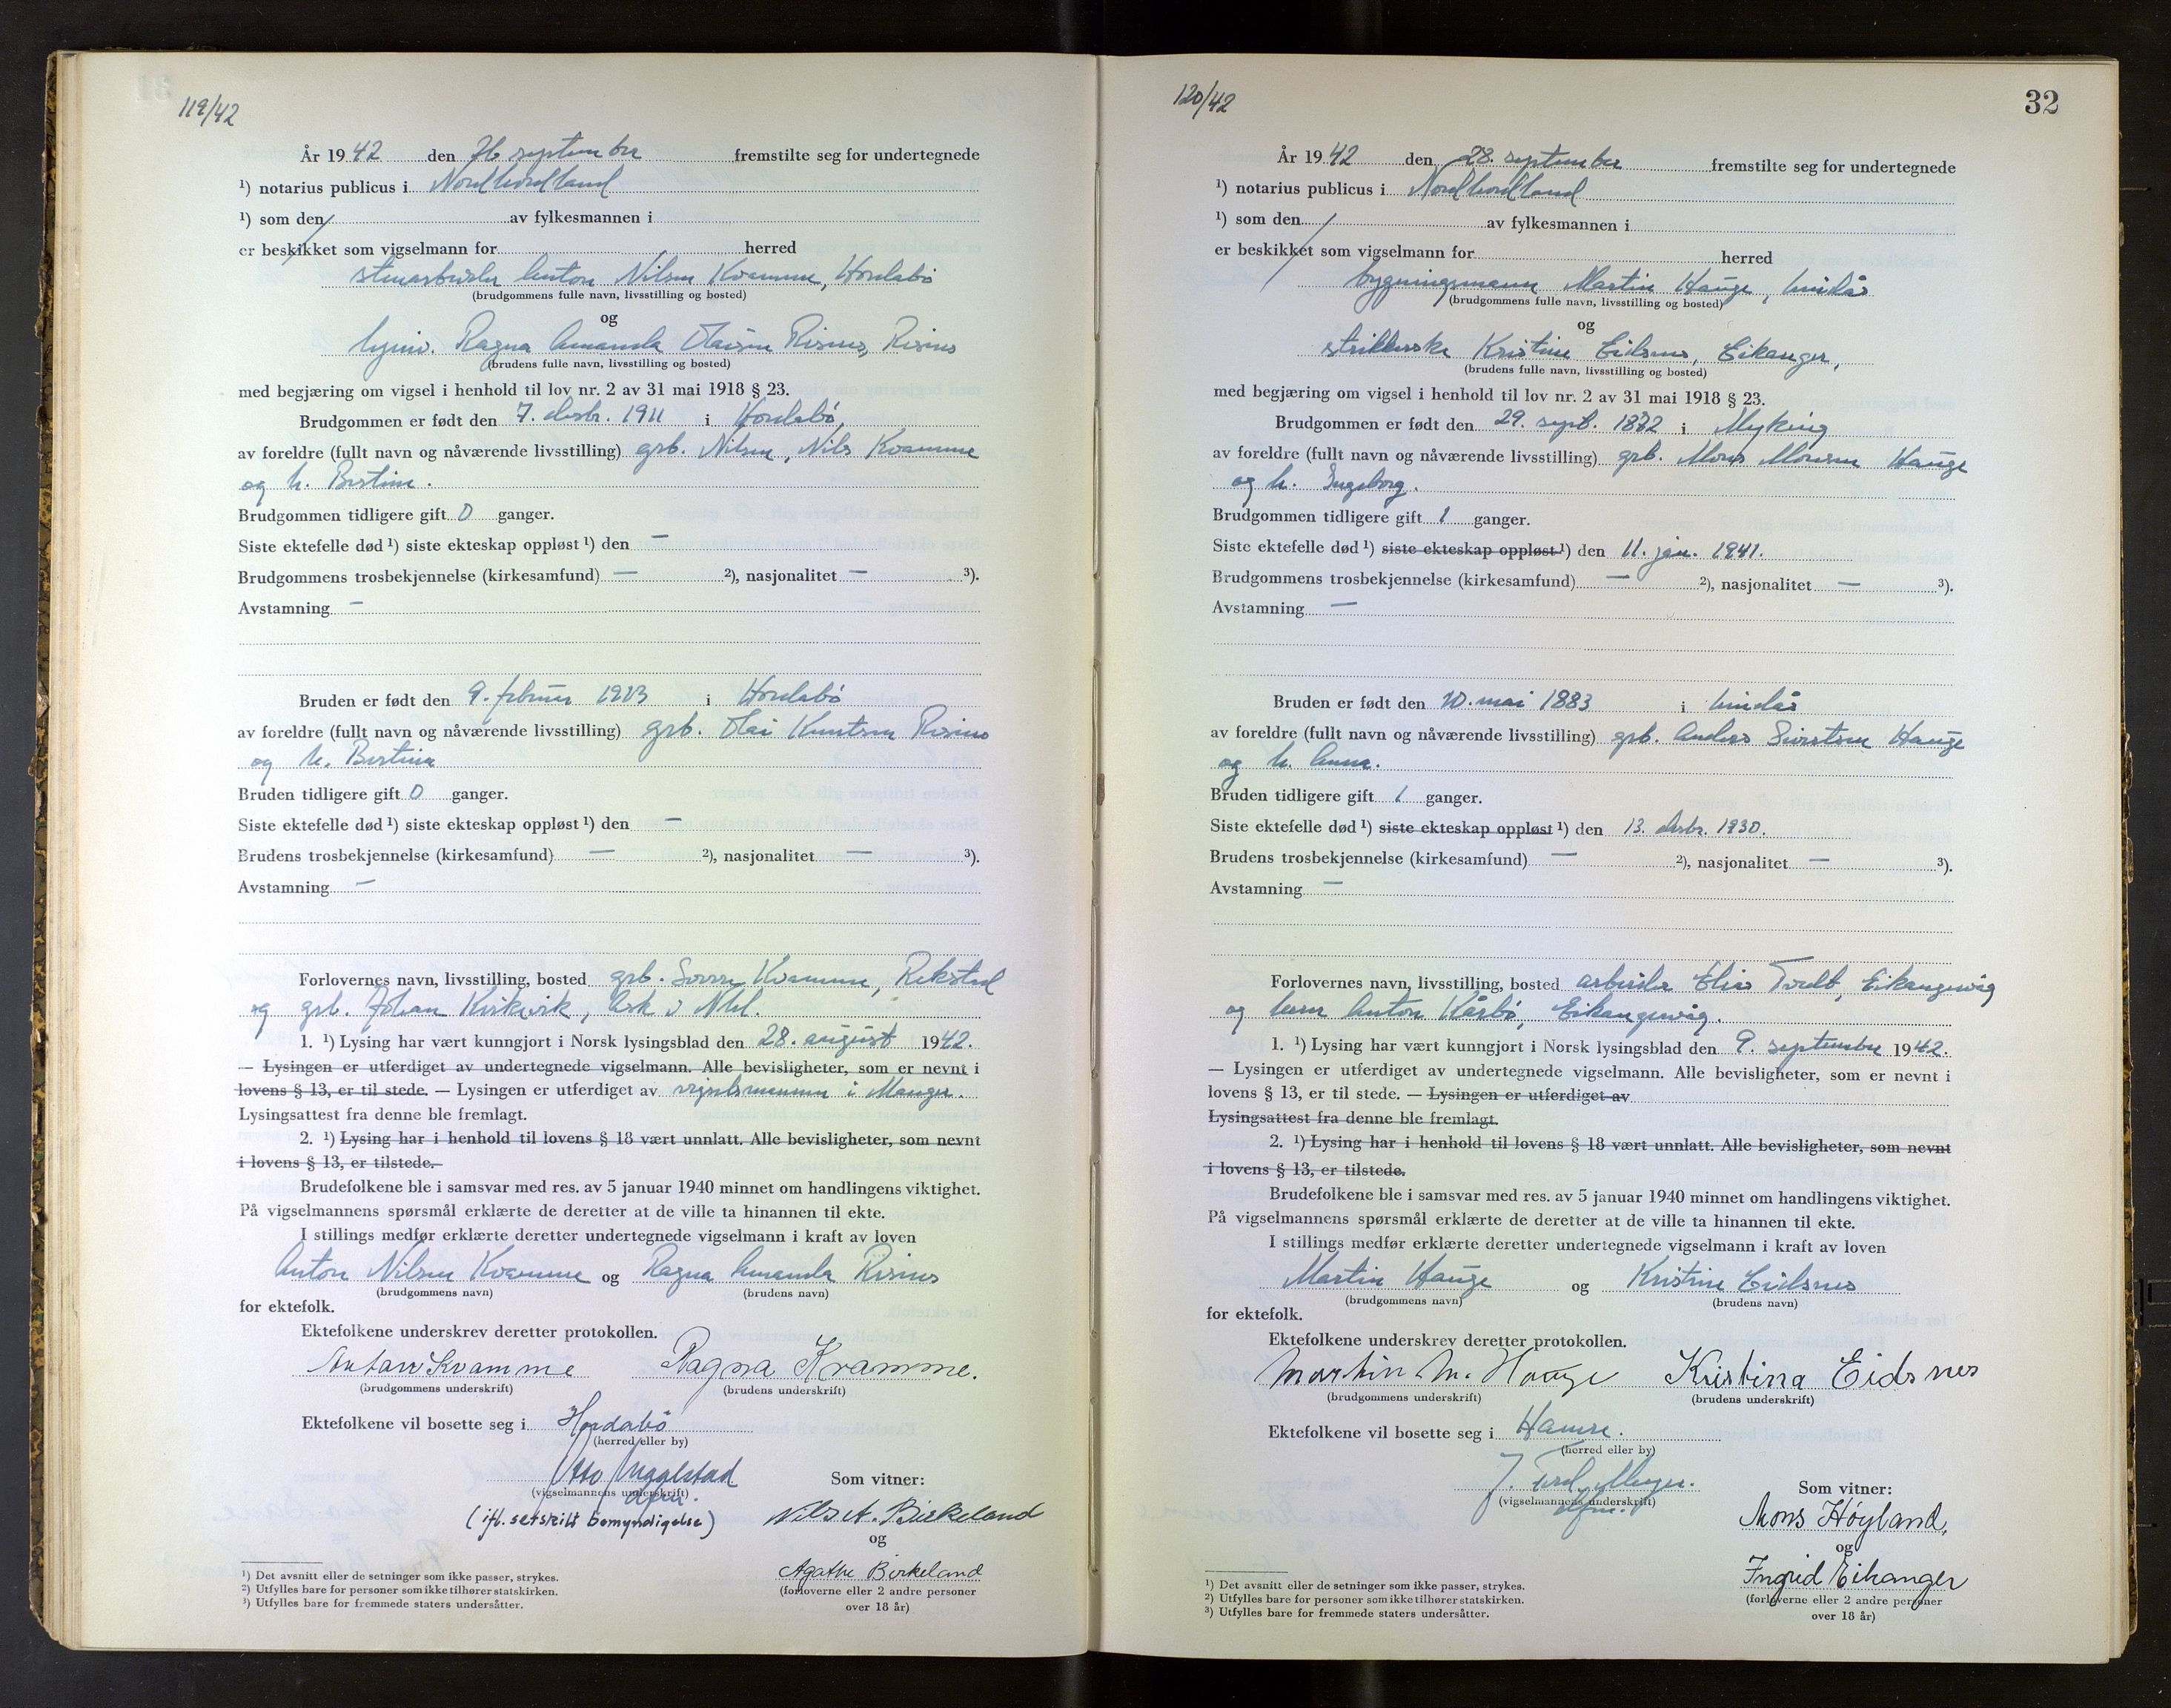 119/42
År 1942 den 26 september fremstilte seg for undertegnede
¹) notarius publicus i Nordhordland
¹) som den av fylkesmannen i
er beskikket som vigselmann for herred
Anton Nilsen Kvamme, Hordabø
(brudgommens fulle navn, livsstilling og bosted)
og
Ragna Amanda Olaisen Risnes, Risnes
(brudens fulle navn, livsstilling og bosted)
med begjæring om vigsel i henhold til lov nr. 2 av 31 mai 1918 § 23.
Brudgommen er født den 7. desbr. 1911 i Hordabø,
av foreldre (fullt navn og nåværende livsstilling) grb. Nilsen, Nils Kvamme
og h. Bertine.
Brudgommen tidligere gift 0 ganger.
Siste ektefelle død ¹) siste ekteskap oppløst ¹) den —
Brudgommens trosbekjennelse (kirkesamfund) — ²), nasjonalitet — ³).
Avstamning —
Bruden er født den 9. februar 1923 i Hordabø
av foreldre (fullt navn og nåværende livsstilling) grb. Olai Knutsen Risnes
og h. Bertina
Bruden tidligere gift 0 ganger.
Siste ektefelle død ¹) siste ekteskap oppløst ¹) den —
Brudens trosbekjennelse (kirkesamfund) — ²), nasjonalitet — ³).
Avstamning —
Forlovernes navn, livsstilling, bosted grb. Sverre Kvamme, Rekstad
og grb. Johan Kirkevik, Ask i Nhl.
1. ¹) Lysing har vært kunngjort i Norsk lysingsblad den 28. august 1942.
— Lysingen er utferdiget av undertegnede vigselmann. Alle bevisligheter, som er nevnt i
lovens § 13, er til stede. — Lysingen er utferdiget av vigselsmannen i Manger.
Lysingsattest fra denne ble fremlagt.
2. ¹) Lysing har i henhold til lovens § 18 vært unnlatt. Alle bevisligheter, som nevnt
i lovens § 13, er tilstede.
Brudefolkene ble i samsvar med res. av 5 januar 1940 minnet om handlingens viktighet.
På vigselmannens spørsmål erklærte de deretter at de ville ta hinannen til ekte.
I stillings medfør erklærte deretter undertegnede vigselmann i kraft av loven
Anton Nilsen Kvamme og Ragna Amanda Risnes
(brudgommens navn) (brudens navn)
for ektefolk.
Ektefolkene underskrev deretter protokollen.
Anton Kvamme Ragna Kvamme.
(brudgommens underskrift) (brudens underskrift)
Ektefolkene vil bosette seg i Hordabø
(herred eller by)
Otto
(vigselmannens underskrift)
dfm.
(ifl. særskilt bemyndigelse)
Som vitner:
Nils A. Birkeland
og
Agathe Birkeland
(forloverne eller 2 andre personer
over 18 år)
¹) Det avsnitt eller de setninger som ikke passer, strykes.
²) Utfylles bare for personer som ikke tilhører statskirken.
³) Utfylles bare for fremmede staters undersåtter.
120/42
32
År 1942 den 28. september fremstilte seg for undertegnede
¹) notarius publicus i Nordhordland
¹) som den av fylkesmannen i
er beskikket som vigselmann for herred
bygningsmann Martin Hauge, Lindås
(brudgommens fulle navn, livsstilling og bosted)
og
strikkerske Kristine Eidsnes, Eikanger,
(brudens fulle navn, livsstilling og bosted)
med begjæring om vigsel i henhold til lov nr. 2 av 31 mai 1918 § 23.
Brudgommen er født den 29. septb. 1882 i Myking
av foreldre (fullt navn og nåværende livsstilling) grb. Mons Monsen Hauge
og h. Ingeborg.
Brudgommen tidligere gift 1 ganger.
Siste ektefelle død ¹) siste ekteskap oppløst ¹) den 11. jan. 1941.
Brudgommens trosbekjennelse (kirkesamfund) — ²), nasjonalitet — ³).
Avstamning —
Bruden er født den 20. mai 1883 i Lindås
av foreldre (fullt navn og nåværende livsstilling) grb. Anders Sjurtsen Hauge
og h. Anna.
Bruden tidligere gift 1 ganger.
Siste ektefelle død ¹) siste ekteskap oppløst ¹) den 13. desbr. 1930.
Brudens trosbekjennelse (kirkesamfund) — ²), nasjonalitet — ³).
Avstamning —
Forlovernes navn, livsstilling, bosted arbeider Elias Tvedt, Eikangervåg
og Anton Kårbø, Eikangervåg.
1. ¹) Lysing har vært kunngjort i Norsk lysingsblad den 9. september 1942.
— Lysingen er utferdiget av undertegnede vigselmann. Alle bevisligheter, som er nevnt i
lovens § 13, er til stede. — Lysingen er utferdiget av
Lysingsattest fra denne ble fremlagt.
2. ¹) Lysing har i henhold til lovens § 18 vært unnlatt. Alle bevisligheter, som nevnt
i lovens § 13, er tilstede.
Brudefolkene ble i samsvar med res. av 5 januar 1940 minnet om handlingens viktighet.
På vigselmannens spørsmål erklærte de deretter at de ville ta hinannen til ekte.
I stillings medfør erklærte deretter undertegnede vigselmann i kraft av loven
Martin Hauge og Kristine Eidsnes
(brudgommens navn) (brudens navn)
for ektefolk.
Ektefolkene underskrev deretter protokollen.
Martin M. Hauge Kristina Eidsnes
(brudgommens underskrift) (brudens underskrift)
Ektefolkene vil bosette seg i Hamre.
(herred eller by)
(vigselmannens underskrift)
dfm.
Som vitner:
Mons Høyland,
og
Ingrid Eikanger
(forloverne eller 2 andre personer
over 18 år)
¹) Det avsnitt eller de setninger som ikke passer, strykes.
²) Utfylles bare for personer som ikke tilhører statskirken.
³) Utfylles bare for fremmede staters undersåtter.